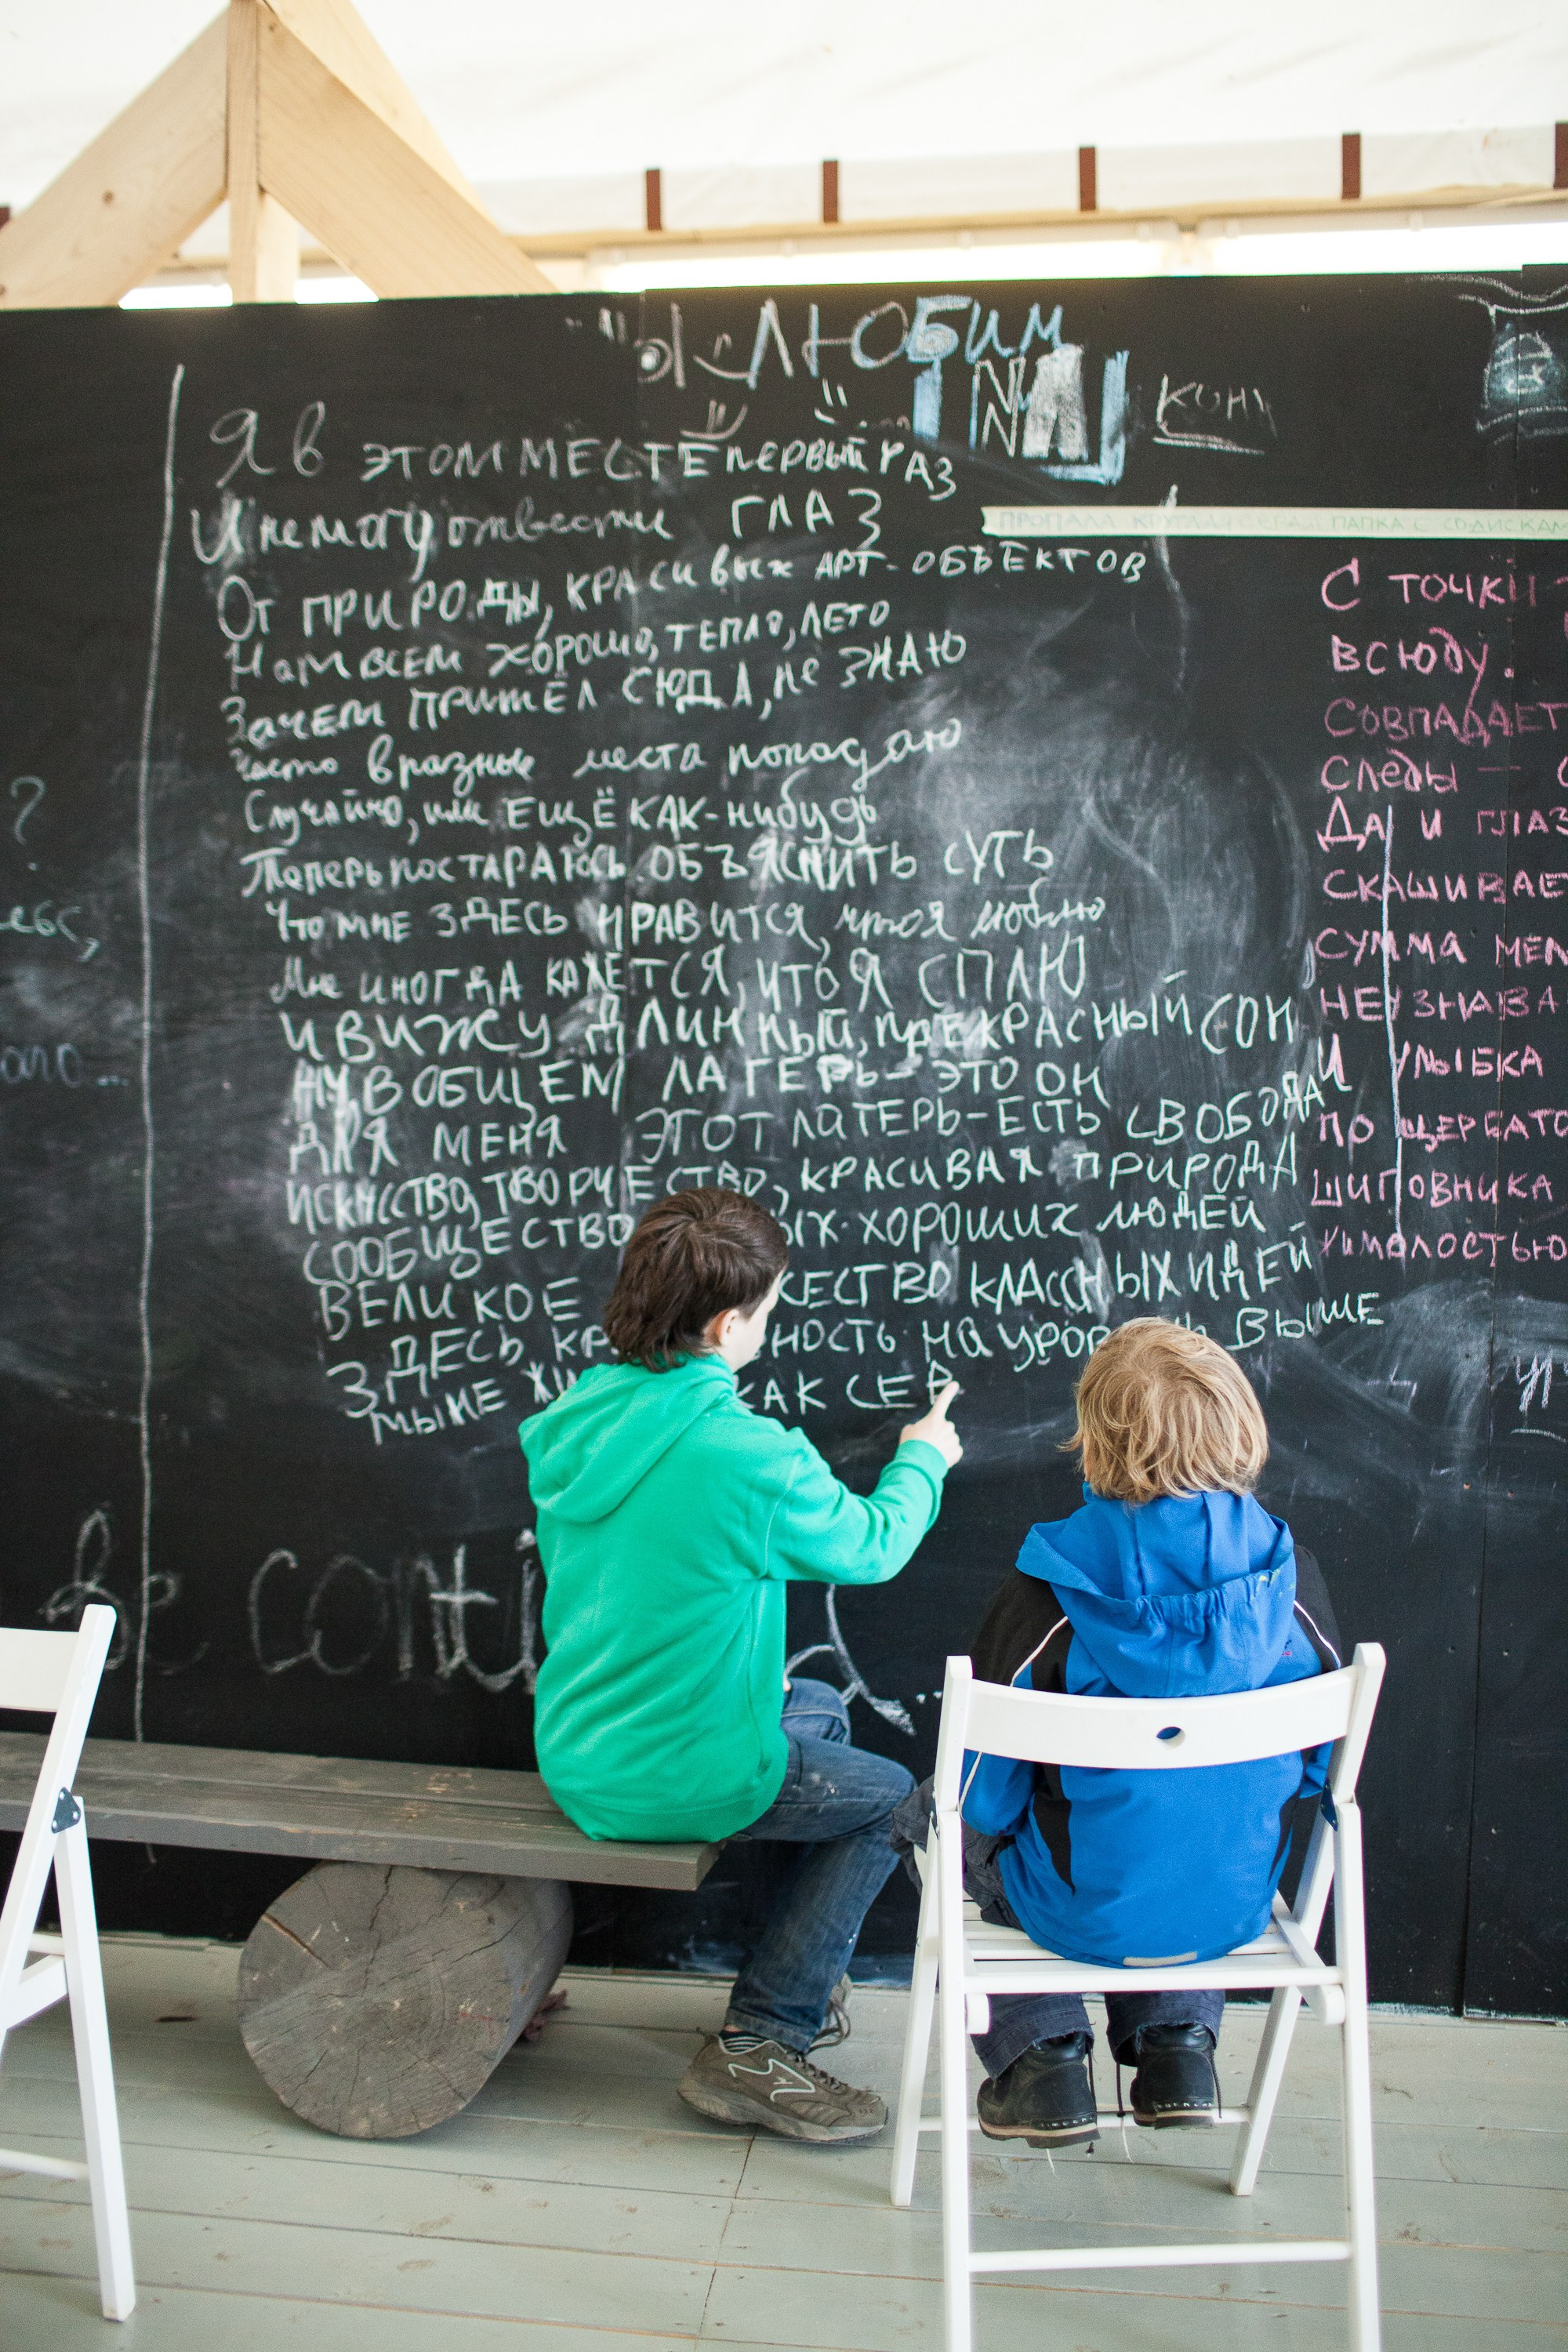 ЛЮБИМ
Я в ЭТОМ МЕСТЕ ПЕРВЫЙ РАЗ
И не могу отвести ГЛАЗ
ПРОПАЛА КРУГЛАЯ СЕРАЯ ПАПКА С CD ДИСКАМ
От ПРИРОДЫ, КРАСИвых АРТ-ОБЪЕКТОВ
Нам ВСЕМ ХОРОШО, ТЕПЛО, ЛЕТО
Зачем ПРИШЁЛ СЮДА, не ЗНАЮ
Часто в разные места попадаю
Случайно, или ЕЩЁ КАК-нибудь
Теперь постАРАЮСЬ ОБЪЯСНИТЬ СУТЬ
Что мне ЗДЕСЬ НРАВИТСЯ, что я люблю
Мне ИНОГДА КАЖЕТСЯ, ЧТО Я СПЛЮ
И ВИЖУ ДЛИННЫЙ, ПРЕКРАСНЫЙ СОН
НУ, В ОБЩЕМ ЛАГЕРЬ- ЭТО ОН
ДЛЯ МЕНЯ ЭТОТ ЛАГЕРЬ-ЕСТЬ СВОБОДА
ИСКУССТВО, ТВОРЧЕСТВО, КРАСИВАЯ ПРИРОДА
СООБЩЕСТВО ЫХ-ХОРОШИХ ЛЮДЕЙ
ВЕЛИКОЕ ЖЕСТВО КЛАССНЫХ ИДЕЙ
ЗДЕСЬ КР НОСТЬ НА УРОВЕНЬ ВЫШЕ
МЫ НЕ ЖИ КАК СЕВ
С ТОЧКИ
ВСЮДУ.
СОВПАДАЕТ
Следы —
ДА И ГЛАЗ
СКАШИВАЕ
СУММА МЕЛ
НЕ УЗНАВА
И УЛЫБКА
ПО ЩЕРБАТО
ШИПОВНИКА
ЖИМОЛОСТЬЮ
?
be conti